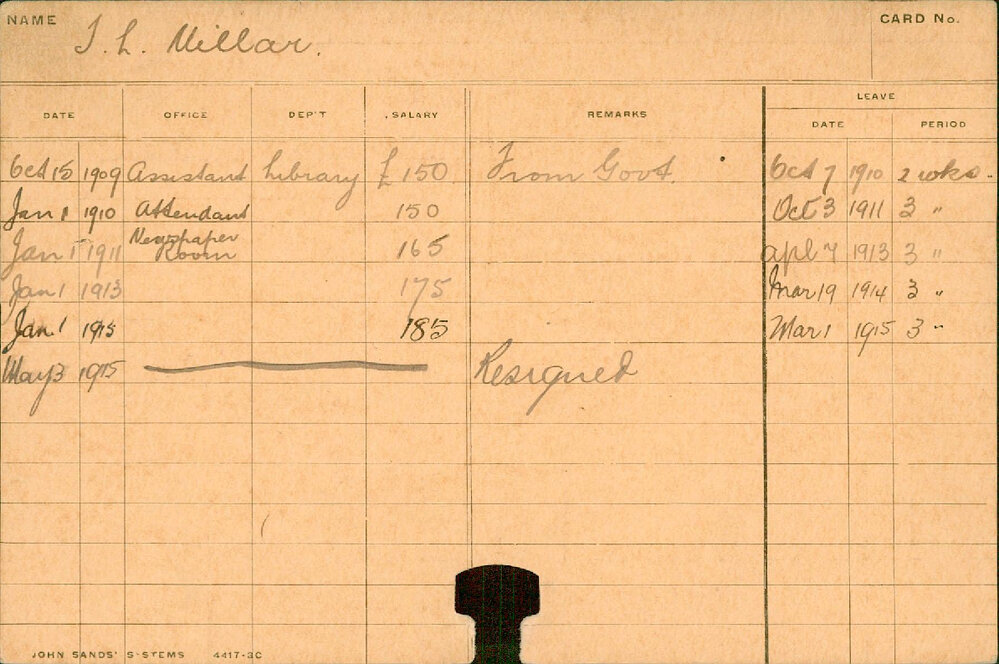 NAME
T. L. Millar.
CARD No.
LEAVE
DATE OFFICE DEP'T SALARY REMARKS DATE PERIOD
Oct 15 1909 Assistant Library £150 From Govt. Oct 7 1910 2 wks.
Jan 1 1910 Attendant 150 Oct 3 1911 3 "
Newspaper
Jan 1 1911 Room 165 Apl 7 1913 3 "
Jan 1 1913 175 Mar 19 1914 3 "
Jan 1 1915 185 Mar 1 1915 3 "
May 3 1915 Resigned
JOHN SANDS' SYSTEMS 4417-3C